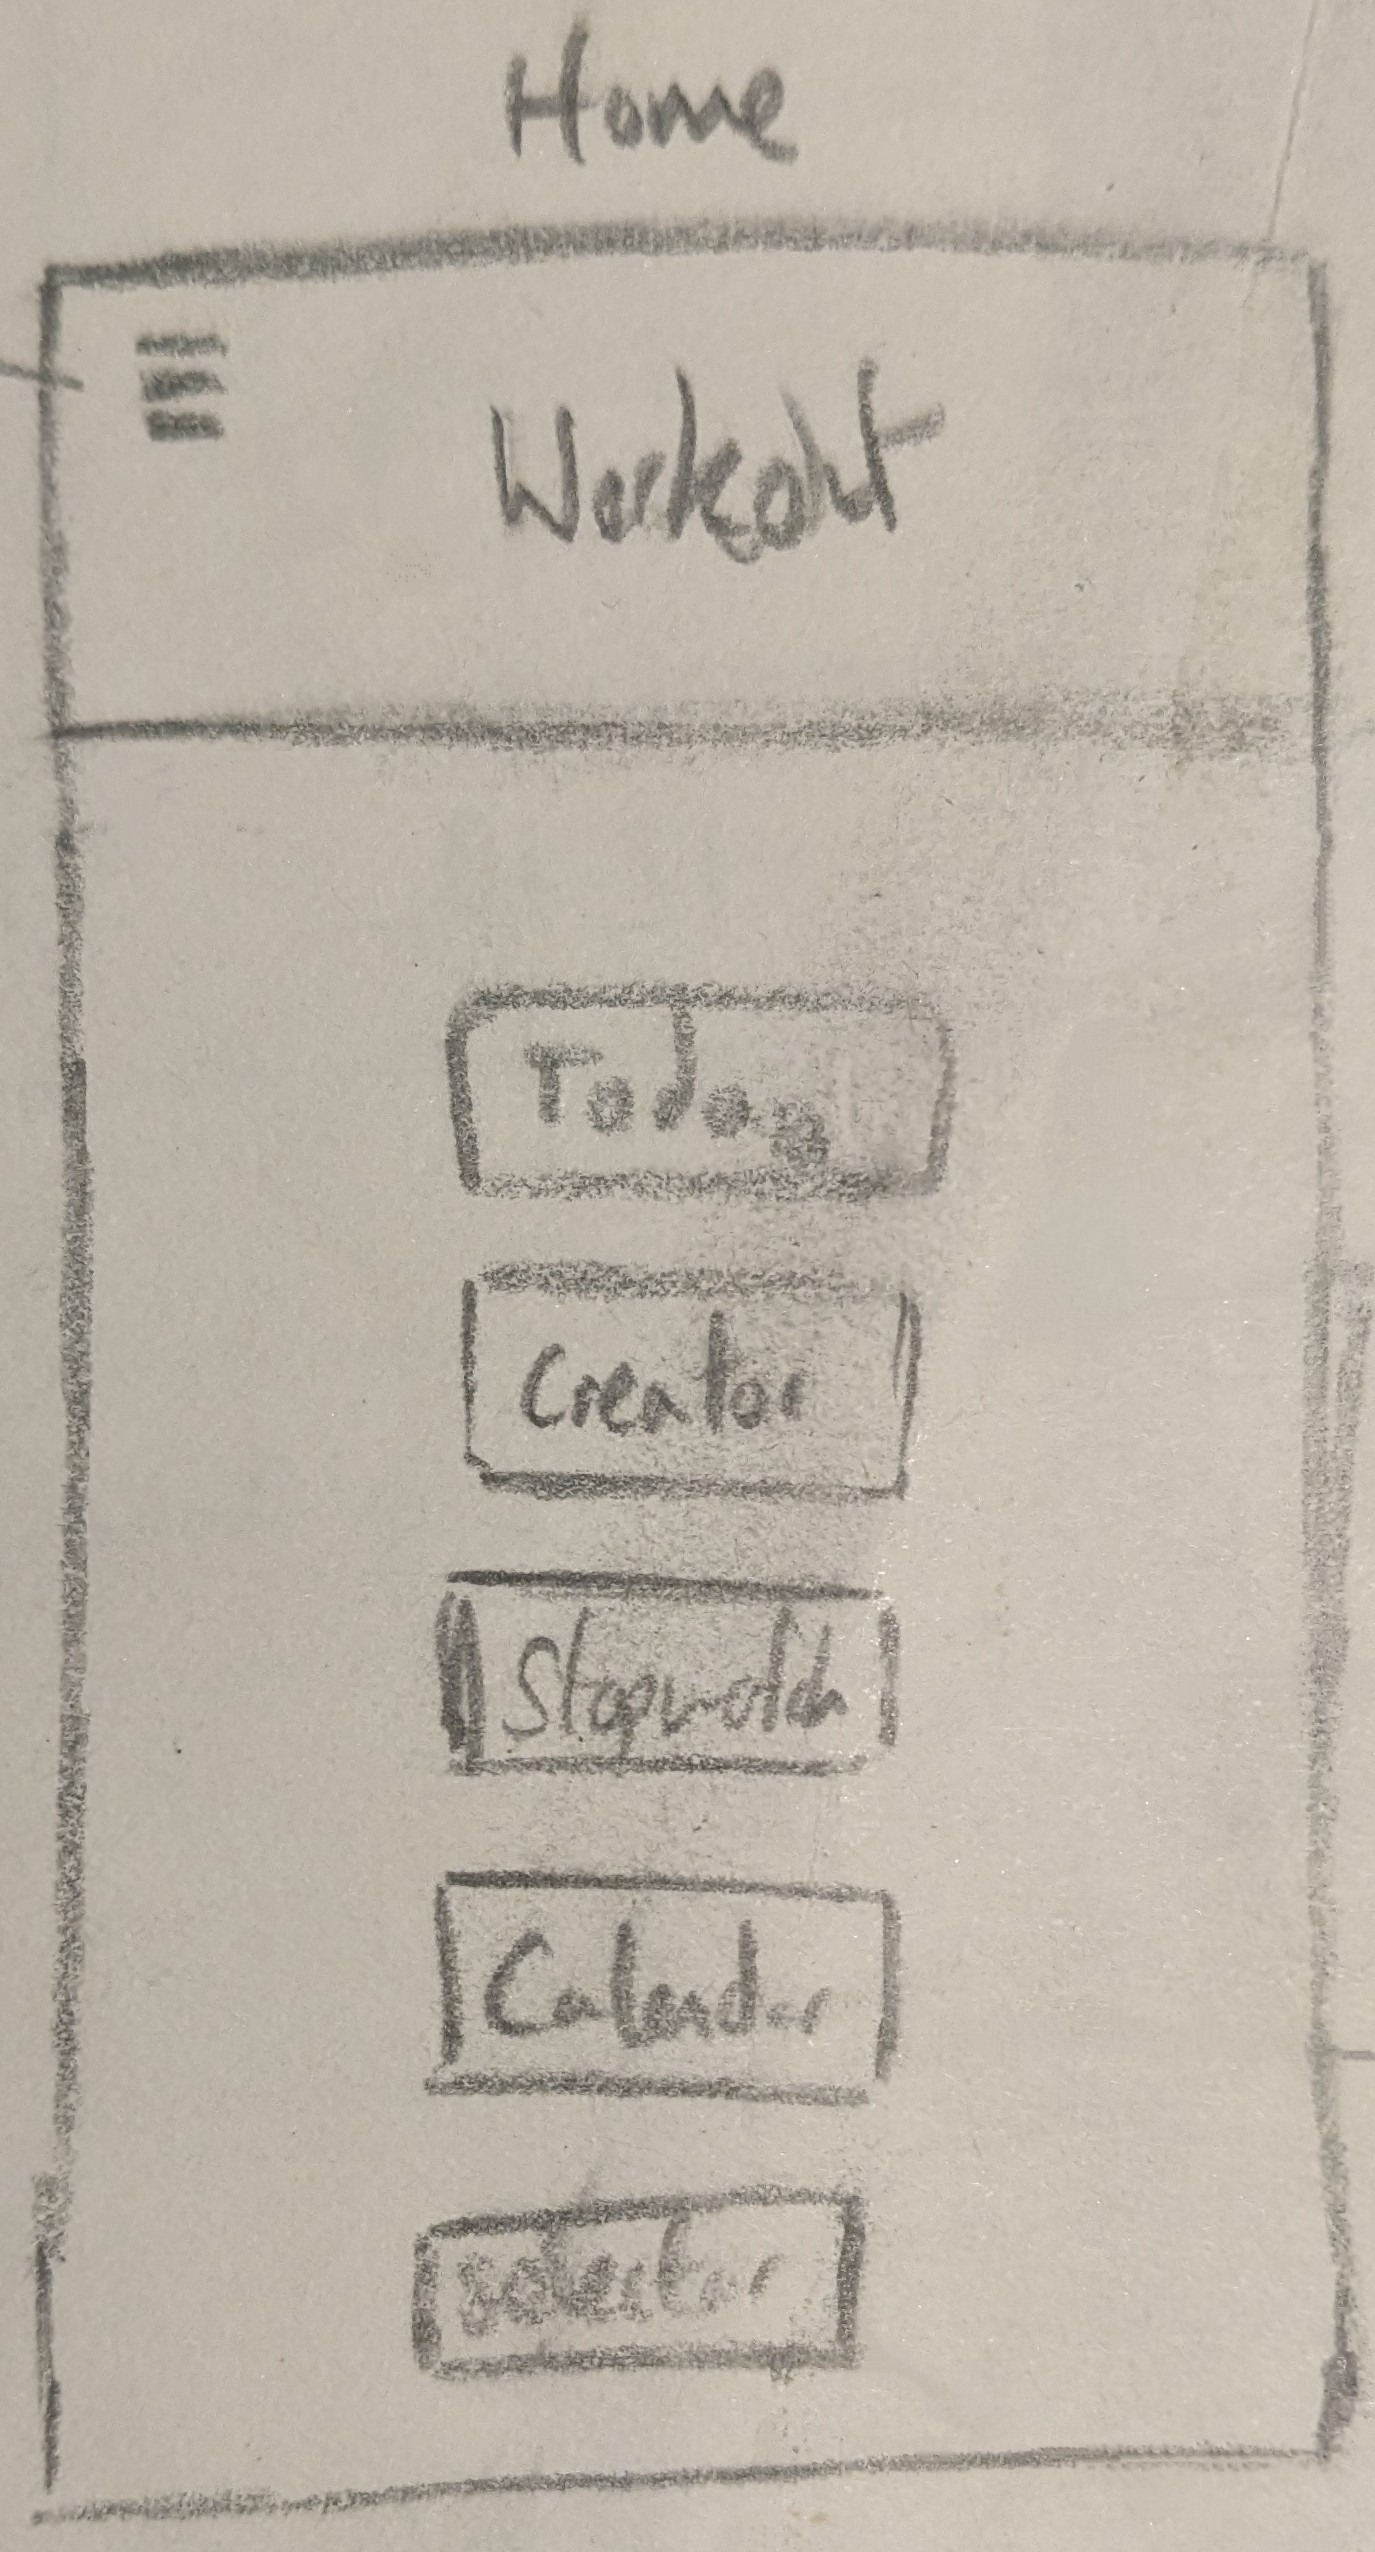 Home
Workout
Todo
Creator
Stopwatch
Calendar
Selector